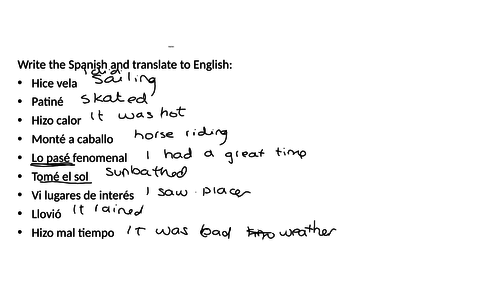 Write the Spanish and translate to English:
I did
• Hice vela sailing
• Patiné skated
• Hizo calor It was hot
• Monté a caballo horse riding
• Lo pasé fenomenal I had a great time
• Tomé el sol sunbathed
• Vi lugares de interés I saw places
• Llovió It rained
• Hizo mal tiempo It was bad weather